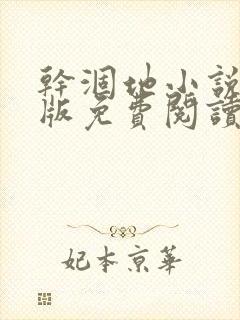 幹涸地小說
版免費閱讀
妃本京華